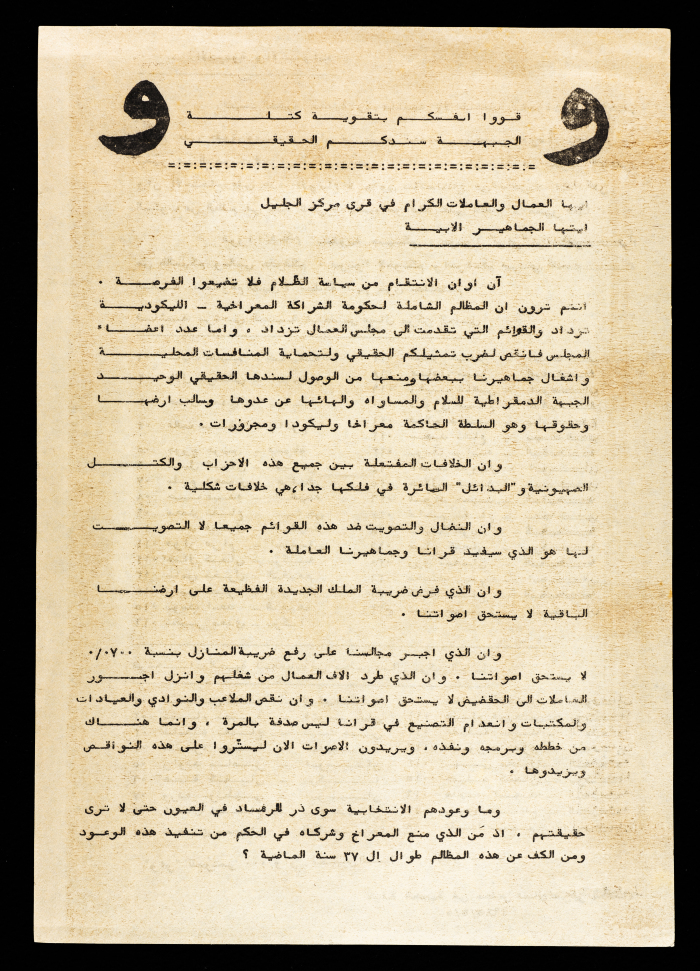 و قووا انفسكم بتقوية كتلة و
الجبهة سندكم الحقيقي
=:=:=:=:=:=:=:=:=:=:=:=:=:=:=:=:=:=:=
ايها العمال والعاملات الكرام في قرى مركز الجليل
ايتها الجماهير الابية
آن اوان الانتقام من سياسة الظّلام فلا تضيعوا الفرصة .
انتم ترون ان المظالم الشاملة لحكومة الشراكة المعراخية - الليكودية
تزداد والقوائم التي تقدمت الى مجلس العمال تزداد ، واما عدد اعضاء
المجلس فانقص لضرب تمثيلكم الحقيقي ولتحماية المنافسات المحلية
واشغال جماهيرنا ببعضها ومنعها من الوصول لسندها الحقيقي الوحيد
الجبهة الدمقراطية للسلام والمساواه والهائها عن عدوها وسالب ارضها
وحقوقها وهو السلطة الحاكمة معراخا وليكودا ومجرورات .
وان الخلافات المفتعلة بين جميع هذه الاحزاب والكتل
الصهيونية و "البدائل" السائرة في فلكها جدا، هي خلافات شكلية .
وان النضال والتصويت ضد هذه القوائم جميعا لا التصويت
لها هو الذي سيفيد قرانا وجماهيرنا العاملة .
وان الذي فرض ضريبة الملك الجديدة الفظيعة على ارضنا
الباقية لا يستحق اصواتنا .
وان الذي اجبر مجالسنا على رفع ضريبة المنازل بنسبة ٧٠٠٪
لا يستحق اصواتنا . وان الذي طرد الاف العمال من شغلهم وانزل اجور
العاملات الى الحضيض لا يستحق اصواتنا . وان نقص الملاعب والنوادي والعيادات
والمكتبات وانعدام التصنيع في قرانا ليس صدفة بالمرة ، وانما هناك
من خططه وبرمجه ونفذه ، ويريدون الاصوات الان ليستّروا على هذه النواقص
ويزيدوها .
وما وعودهم الانتخابية سوى ذر للرماد في العيون حتى لا ترى
حقيقتهم ، اذ مَن الذي منع المعراخ وشركاه في الحكم من تنفيذ هذه الوعود
ومن الكف عن هذه المظالم طوال ال ٣٧ سنة الماضية ؟